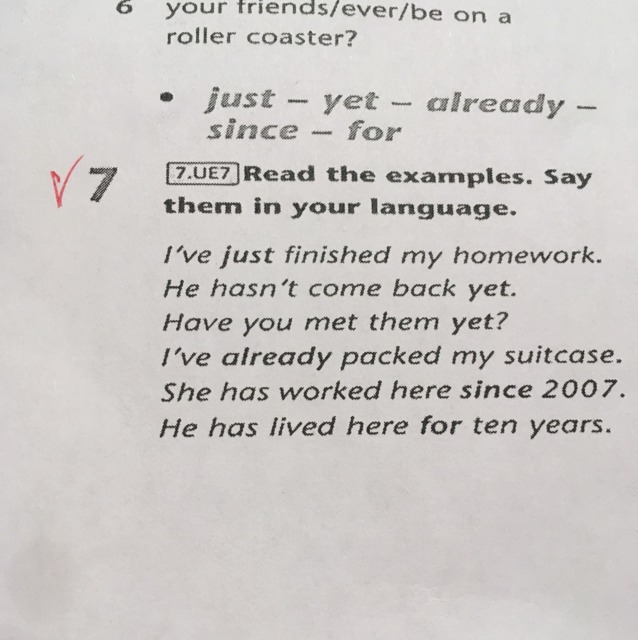 6 your friends/ever/be on a
roller coaster?
• just – yet – already –
since – for
7 7.UE7 Read the examples. Say
them in your language.
I've just finished my homework.
He hasn't come back yet.
Have you met them yet?
I've already packed my suitcase.
She has worked here since 2007.
He has lived here for ten years.